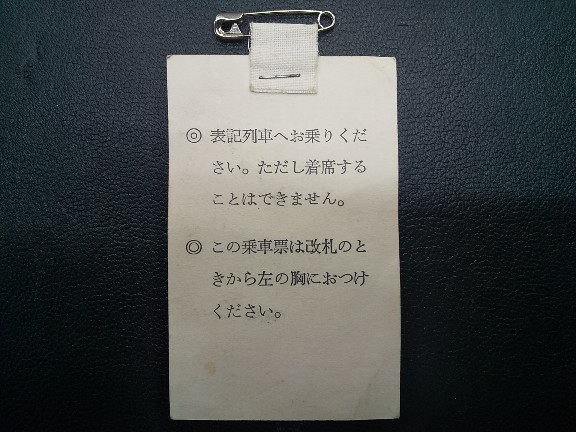 ◎ 表記列車へお乗りくだ
さい。ただし着席する
ことはできません。
◎ この乗車票は改札のと
きから左の胸におつけ
ください。